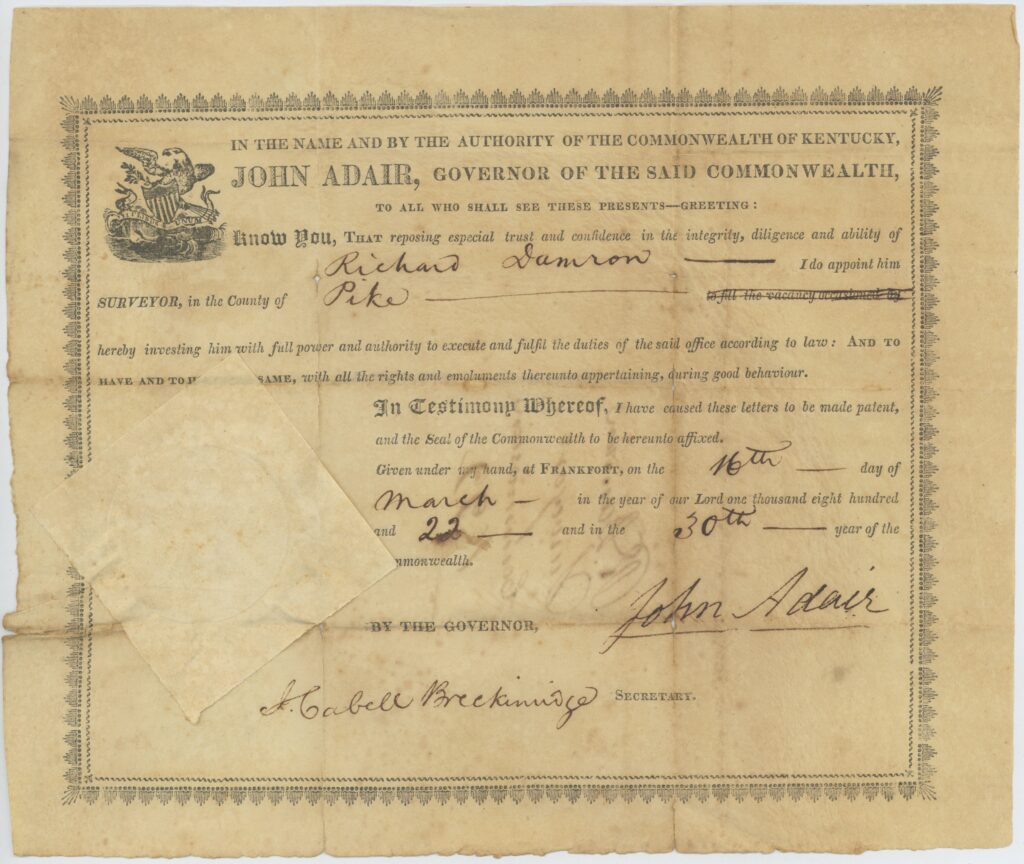 IN THE NAME AND BY THE AUTHORITY OF THE COMMONWEALTH OF KENTUCKY,
JOHN ADAIR, GOVERNOR OF THE SAID COMMONWEALTH,
TO ALL WHO SHALL SEE THESE PRESENTS—GREETING:
Know You, THAT reposing especial trust and confidence in the integrity, diligence and ability of
Richard Damron — I do appoint him
SURVEYOR, in the County of Pike — to fill the vacancy occasioned by
hereby investing him with full power and authority to execute and fulfil the duties of the said office according to law: AND TO
HAVE AND TO H SAME, with all the rights and emoluments thereunto appertaining, during good behaviour.
In Testimony Whereof, I have caused these letters to be made patent,
and the Seal of the Commonwealth to be hereunto affixed.
Given under my hand, at FRANKFORT, on the 16th — day of
March — in the year of our Lord one thousand eight hundred
and 22 — and in the 30th — year of the
mmonwealth.
John Adair
BY THE GOVERNOR,
J. Cabell Breckinridge SECRETARY.